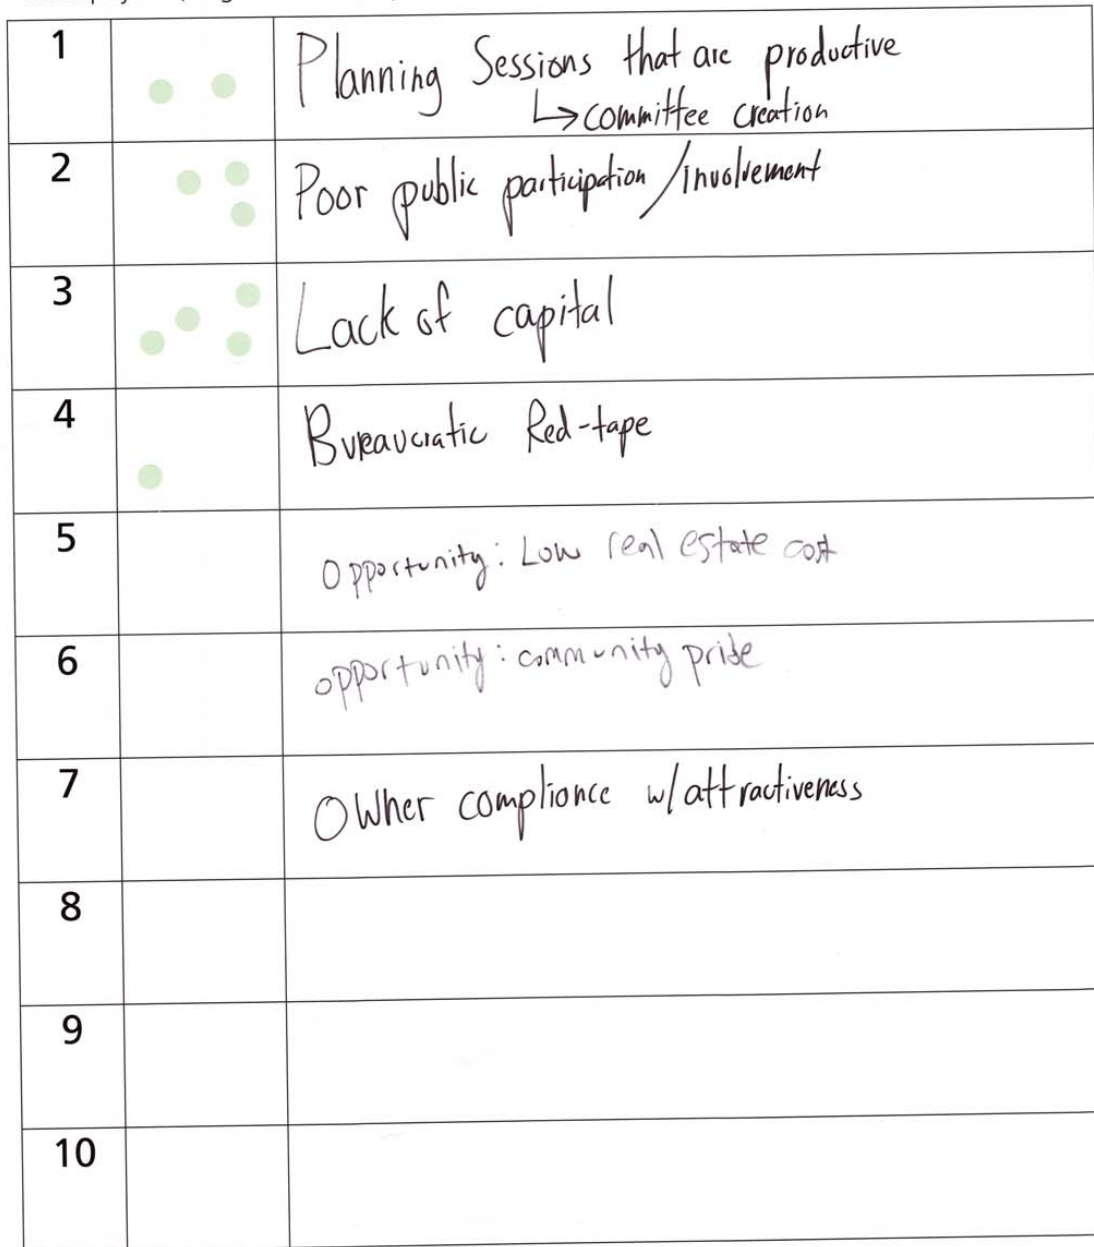 1
Planning Sessions that are productive
↳ committee creation
2
Poor public participation / involvement
3
Lack of capital
4
Bureaucratic Red-tape
5
Opportunity: Low real estate cost
6
opportunity: community pride
7
Owner compliance w/ attractiveness
8
9
10